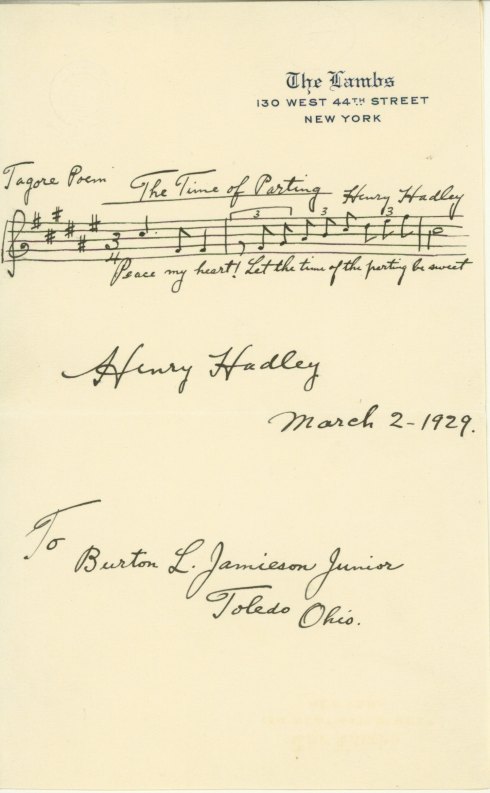 The Lambs
130 WEST 44TH STREET
NEW YORK
Tagore Poem The Time of Parting Henry Hadley
3 3 3
3
4
Peace my heart! Let the time of the parting be sweet
Henry Hadley
March 2-1929.
To
Burton L. Jamieson Junior
Toledo Ohio.